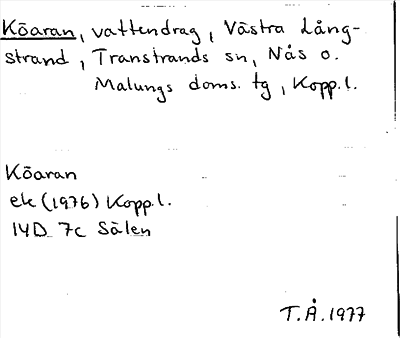 Köaran, vattendrag, Västra Lång-
strand, Transtrands sn, Nås o.
Malungs doms. tg, Kopp.l.
Köaran
ek (1976) Kopp.l.
14D 7c Sälen
T.Å.1977